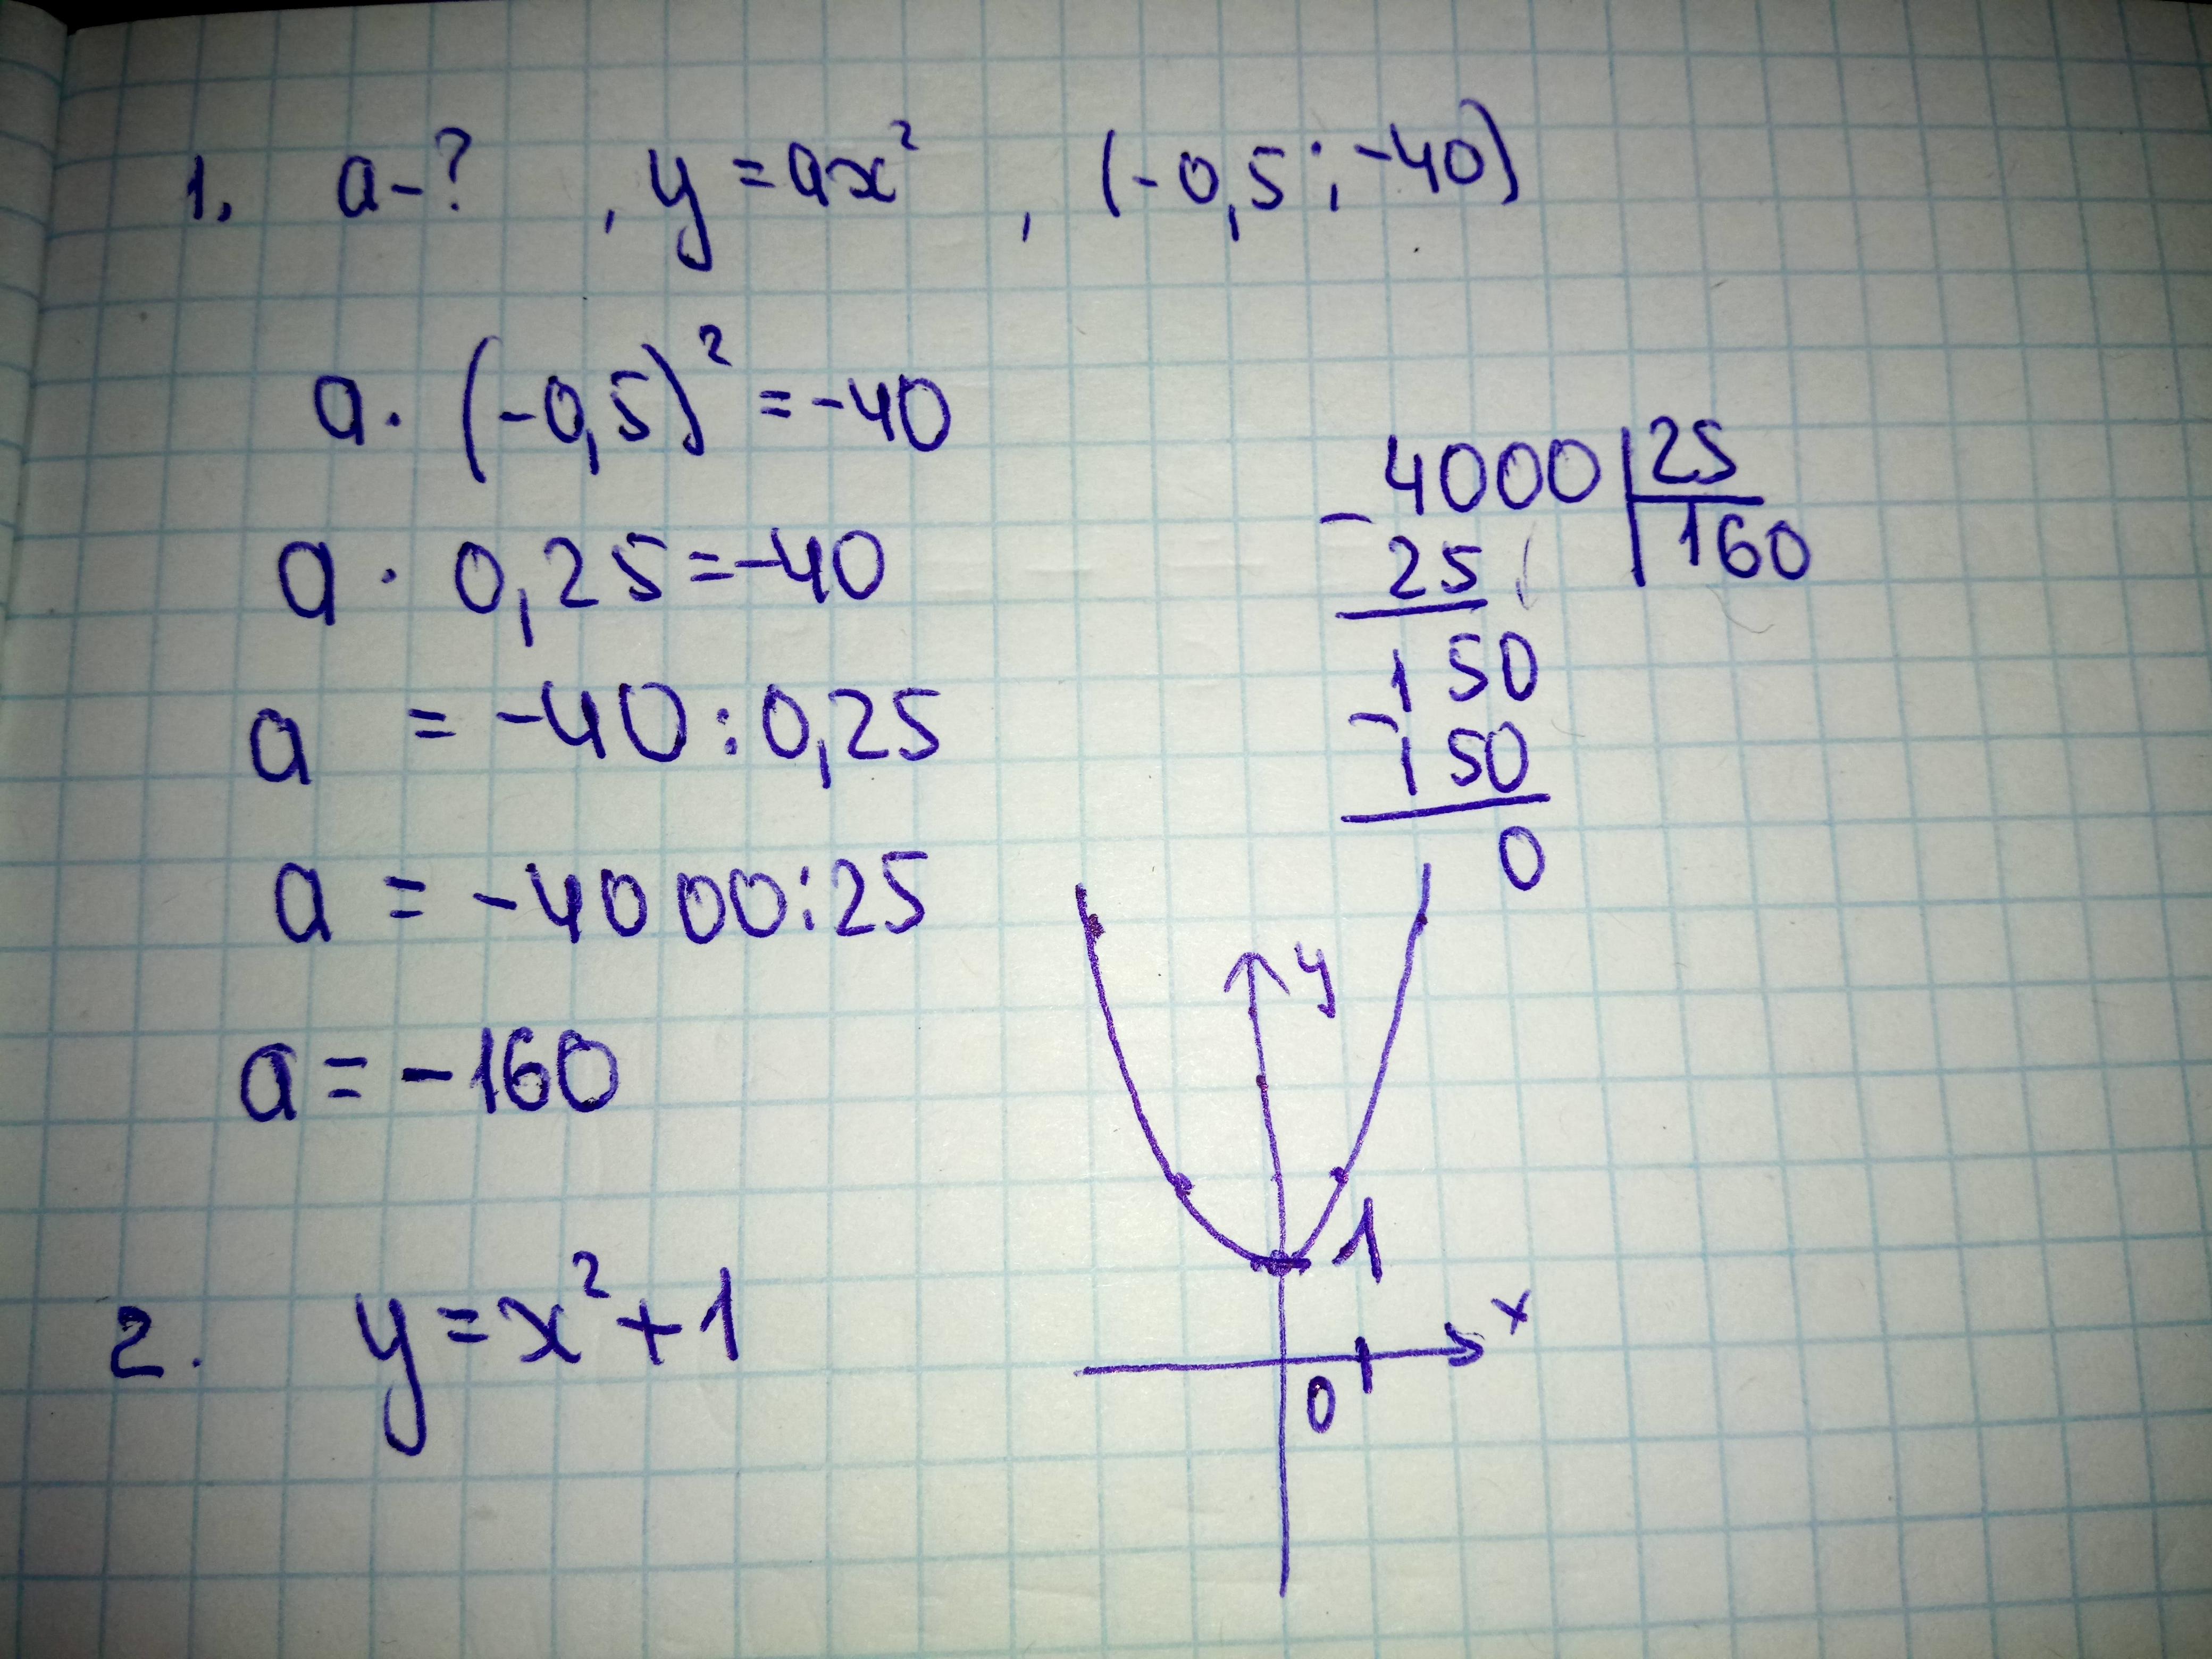 1. a-? , y=ax² , (-0,5; -40)
a· (-0,5)² =-40
a · 0,25=-40
a = -40:0,25
a = -4000:25
a=-160
-4000|25
25 160
150
-150
0
y
1
x
0
2. y=x²+1